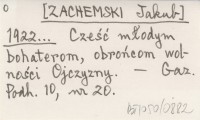 0 [ZACHEMSKI Jakub]
1922... Cześć młodym
bohaterom, obrońcom wol-
ności Ojczyzny. — Gaz.
Podh. 10, nr 20.